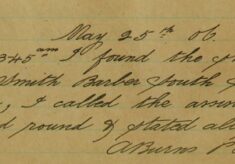 May 25th 06.
345 am I found the
Smith Barber South
I called the
d round & stated all
A Burns P